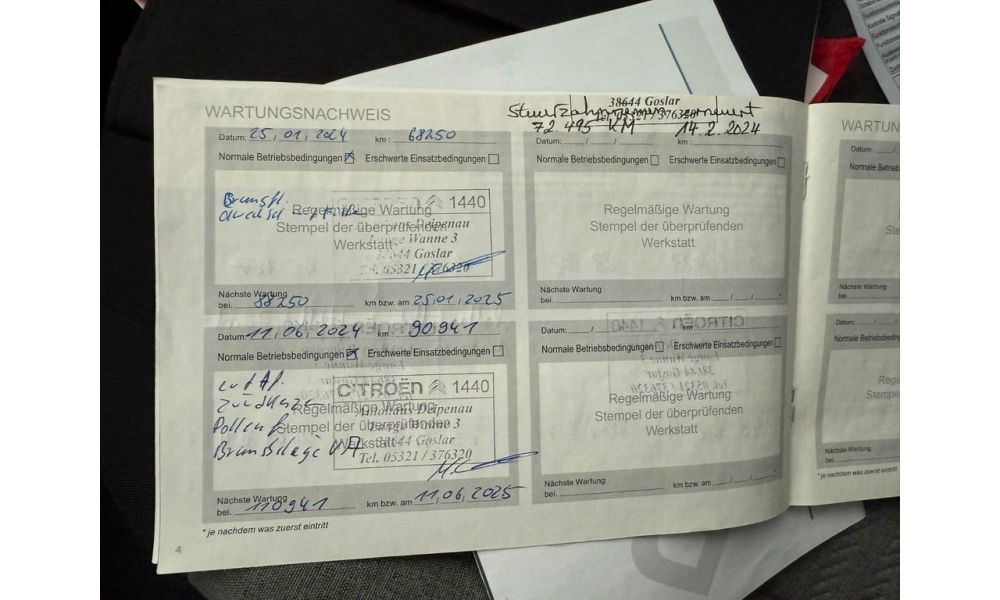 WARTUNGSNACHWEIS
Datum: 25, 01, 2024 km: 68250
Normale Betriebsbedingungen Erschwerte Einsatzbedingungen
Regelmäßige Wartung
Stempel der überprüfenden
Werkstatt
1440
Deipenau
Lange Wanne 3
38644 Goslar
Tel. 05321 / 376320
Nächste Wartung
bei. 88250 km bzw. am 25,01,2025
Datum: 11,06,2024 km: 90941
Normale Betriebsbedingungen Erschwerte Einsatzbedingungen
CITROËN 1440
Zündkerze
Regelmäßige Wartung
Deipenau
Stempel der überprüfenden
Lange Wanne 3
Pollenf
Werkstatt
38644 Goslar
Bremsbeläge VA
Tel. 05321 / 376320
Nächste Wartung
bei. 110941 km bzw. am 11,06,2025
* je nachdem was zuerst eintritt
4
38644 Goslar
Steuerzahnriemen erneuert
Tel. 05321 / 376320
72 495 KM 14.2.2024
Datum: __/__/__ km:
Normale Betriebsbedingungen Erschwerte Einsatzbedingungen
Regelmäßige Wartung
Stempel der überprüfenden
Werkstatt
Nächste Wartung
bei. km bzw. am __/__/__*
Datum: __/__/__ km
Normale Betriebsbedingungen Erschwerte Einsatzbedingungen
Regelmäßige Wartung
Stempel der überprüfenden
Werkstatt
Nächste Wartung
bei. km bzw. am __/__/__*
WARTUN
Datum:
Normale Betrieb
Nächste Wartung
bei.
Datum:
Normale Betrieb
Rege
Stempe
Nächste Wartung
bei
* je nachdem was zuerst eintritt